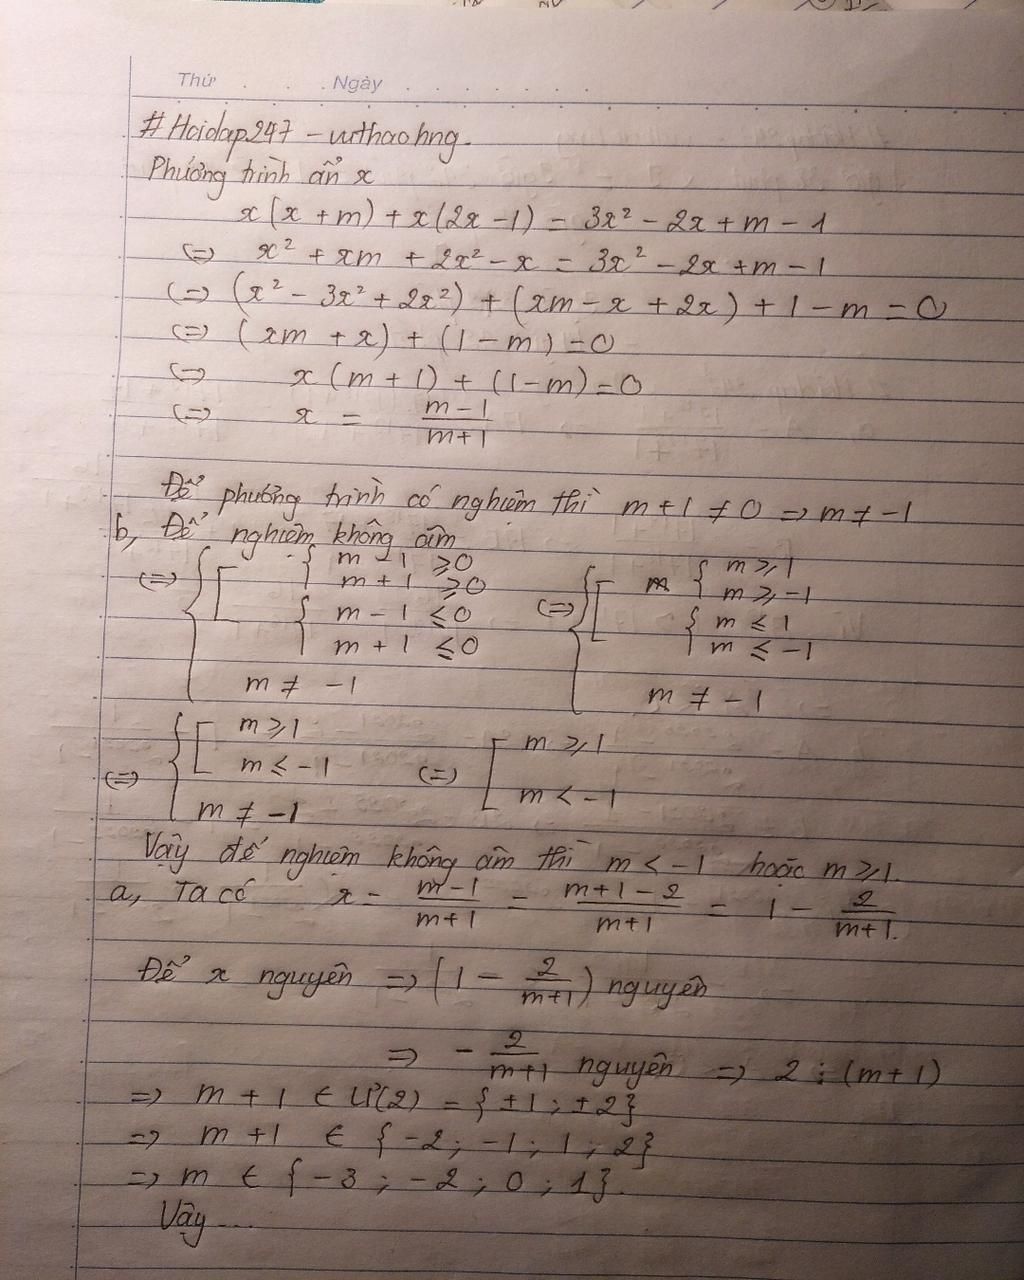 Thứ . . . Ngày . . . . . . .
#Hoidap247 - vuthaohng.
Phương trình ẩn x
x(x + m) + x(2x - 1) = 3x² - 2x + m - 1
(=) x² + xm + 2x² - x = 3x² - 2x + m - 1
(=) (x² - 3x² + 2x²) + (xm - x + 2x) + 1 - m = 0
(=) (xm + x) + (1 - m) = 0
(=) x(m + 1) + (1 - m) = 0
(=) x = \frac{m - 1}{m + 1}
Để phương trình có nghiệm thì m + 1 ≠ 0 => m ≠ -1
b, Để nghiệm không âm
(=) { [ { m - 1 ≥ 0 (=) { [ m { m ≥ 1
m + 1 ≥ 0 m ≥ -1
{ m - 1 ≤ 0 { m ≤ 1
m + 1 ≤ 0 m ≤ -1
m ≠ -1 m ≠ -1
(=) { [ m ≥ 1 (=) [ m ≥ 1
m ≤ -1 m < -1
m ≠ -1
Vậy để nghiệm không âm thì m < -1 hoặc m ≥ 1.
a, Ta có x = \frac{m - 1}{m + 1} = \frac{m + 1 - 2}{m + 1} = 1 - \frac{2}{m + 1}.
Để x nguyên => (1 - \frac{2}{m + 1}) nguyên
=> - \frac{2}{m + 1} nguyên => 2 ⋮ (m + 1)
=> m + 1 ∈ Ư(2) = {±1 ; ±2}
=> m + 1 ∈ {-2 ; -1 ; 1 ; 2}
=> m ∈ {-3 ; -2 ; 0 ; 1}.
Vậy ...